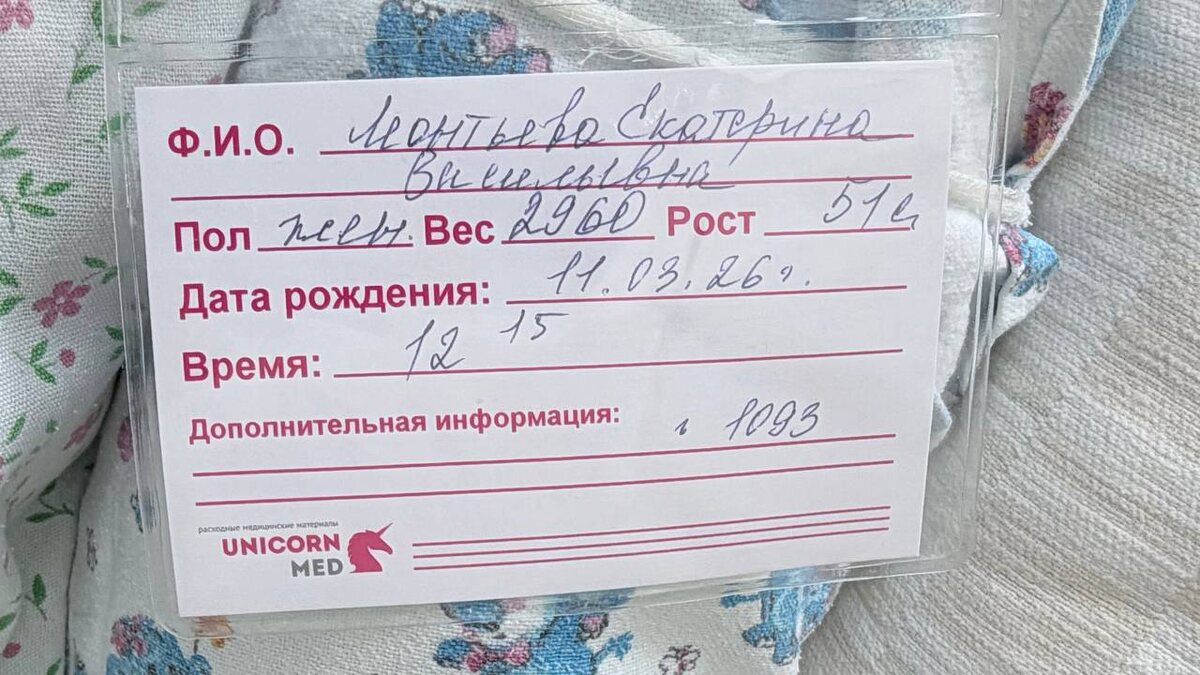 Ф.И.О. Леонтьева Екатерина
Васильевна
Пол жен. Вес 2960 Рост 51 см
Дата рождения: 11.03.26 г.
Время: 12 15
Дополнительная информация: 1093
расходные медицинские материалы
UNICORN
MED